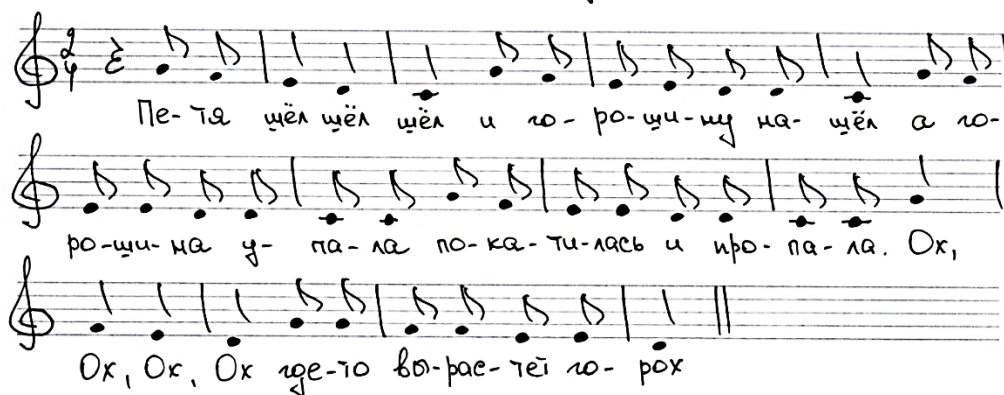 2
4
Пе-тя шёл шёл шёл и го-ро-ши-ну на-шёл а го-
ро-ши-на у-па-ла по-ка-ти-лась и про-па-ла. Ох,
Ох, Ох, Ох где-то вы-рас-тет го-рох